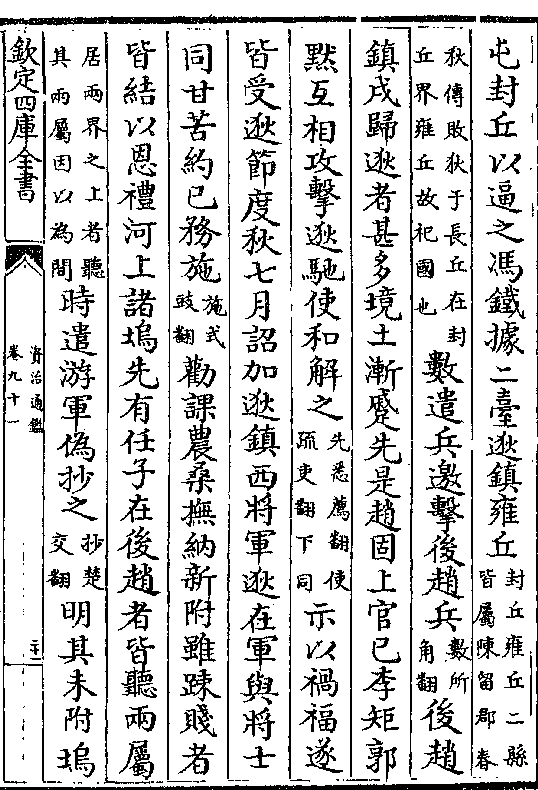 屯封丘以逼之馮鐵據二臺逖鎮雍丘封丘雍丘二縣皆屬陳留郡春
秋傳敗狄于長丘在封丘界雍丘故杞國也數遣兵邀擊後趙兵數所角翻後趙
鎮戍歸逖者甚多境土漸蹙先是趙固上官已李矩郭
黙互相攻擊逖馳使和解之先悉薦翻使疏吏翻下同示以禍福遂
皆受逖節度秋七月詔加逖鎮西將軍逖在軍與將士
同甘苦約已務施施式豉翻勸課農桑撫納新附雖踈賤者
皆結以恩禮河上諸塢先有任子在後趙者皆聽兩屬
居兩界之上者聽其兩屬因以為間時遣游軍偽抄之抄楚交翻明其未附塢
欽定四庫全書
資治通鑑
卷九十一